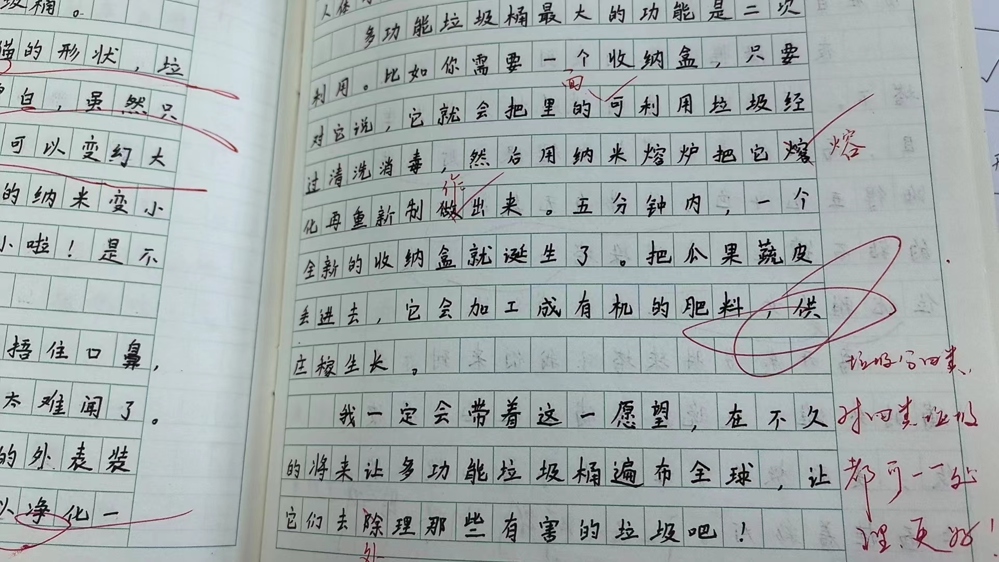 圾桶。
猫的形状，垃
白，虽然只
可以变幻大
的纳米变小
小啦！是不
捂住口鼻，
太难闻了。
的外表装
以净化一
多功能垃圾桶最大的功能是二次
利用。比如你需要一个收纳盒，只要
面
对它说，它就会把里的可利用垃圾经
过清洗消毒，然后用纳米熔炉把它熔 熔
作
化再重新制做出来。五分钟内，一个
全新的收纳盒就诞生了。把瓜果蔬皮
丢进去，它会加工成有机的肥料，供
庄稼生长。
我一定会带着这一愿望，在不久
的将来让多功能垃圾桶遍布全球，让
它们去除理那些有害的垃圾吧！
处
垃圾分四类，
对四类垃圾
都可一一处
理，更好！